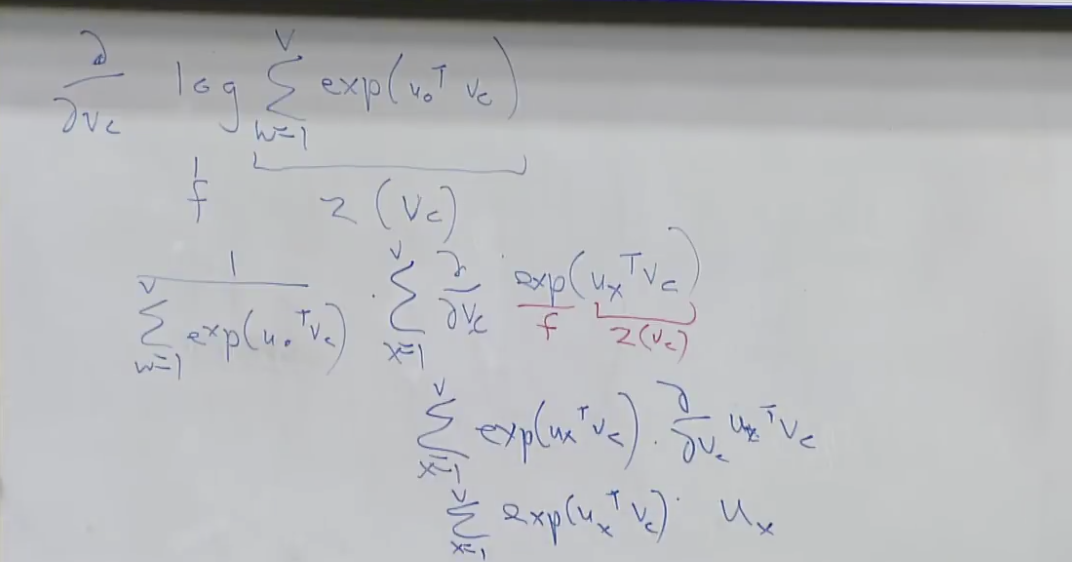 ∂/∂v_c log ∑_{w=1}^{V} exp(u_o^T v_c)
f z(v_c)
1/∑_{w=1}^{V} exp(u_o^T v_c) · ∑_{x=1}^{V} ∂/∂v_c exp(u_x^T v_c)
f z(v_c)
∑_{x=1}^{V} exp(u_x^T v_c) · ∂/∂v_c u_x^T v_c
∑_{x=1}^{V} exp(u_x^T v_c) · u_x